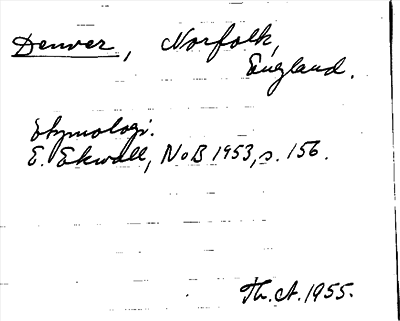 Denver, Norfolk,
England.
Etymologi.
E. Ekwall, NoB 1953, s. 156.
Th. A. 1955.